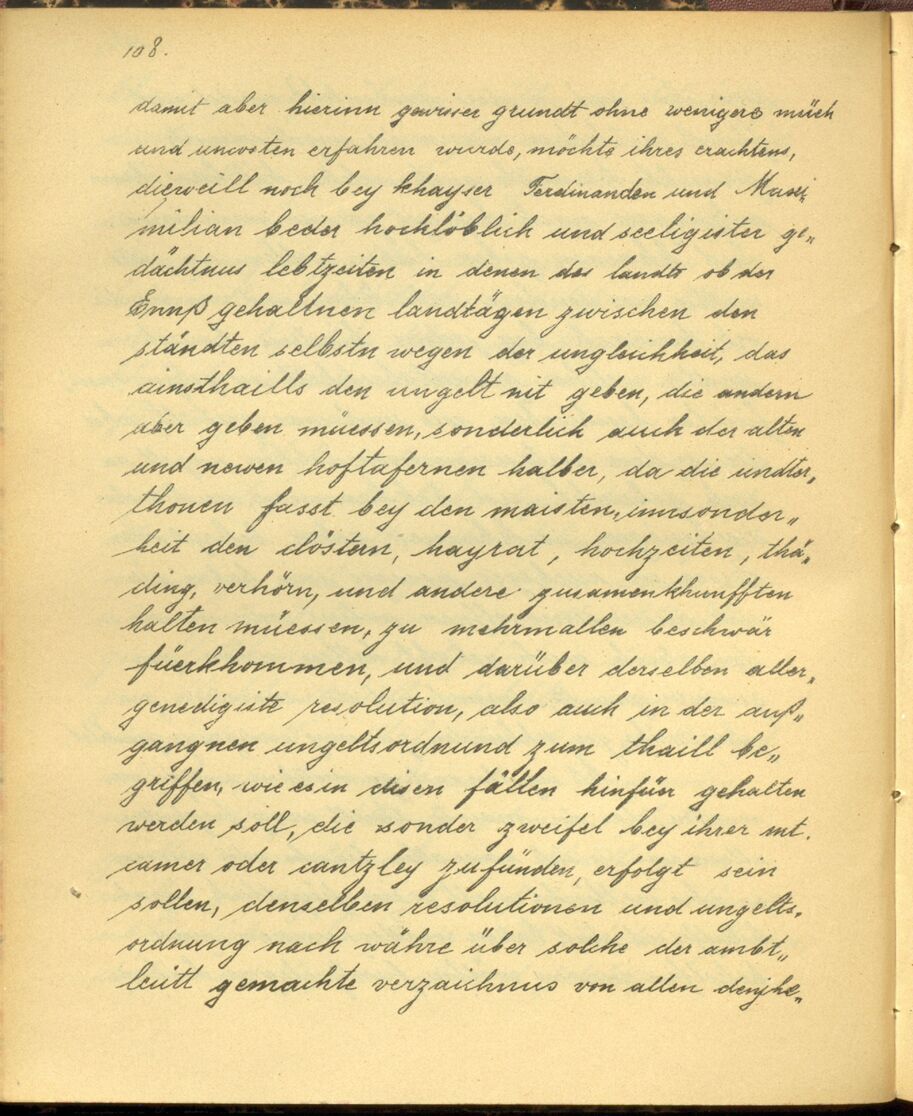 108.
damit aber hierinn gewisser grundt ohne wenigere müeh
und uncosten erfahren wurde, möchte ihres erachtens,
dierweill noch bey khayser Ferdinanden und Maxi„
milian beder hochlöblich und seeligister ge„
dächtnus lebtzeiten in denen des landts ob der
Ennß gehaltnen landtägen zwischen den
ständten selbstn wegen der ungleichheit, das
ainsthaills den ungelt nit geben, die andern
aber geben müessen, sonderlich auch der alten
und newen hoftafernen halber, da die undter„
thonen fasst bey den maisten, innsonder„
heit den clöstern, hayrat, hochzeiten, thä„
ding, verhörn, und andere zusamenkhunfften
halten müessen, zu mehrmallen beschwär
füerkhommen, und darüber derselben aller„
genedigiste resolution, also auch in der auß„
gangnen ungeltsordnund zum thaill be„
griffen, wie es in disen fällen hinfür gehalten
werden soll, die sonder zweifel bey ihrer mt.
camer oder cantzley zufünden, erfolgt sein
sollen, denselben resolutionen und ungelts„
ordnung nach währe über solche der ambt„
leütt gemachte verzaichnus von allen denjhe„